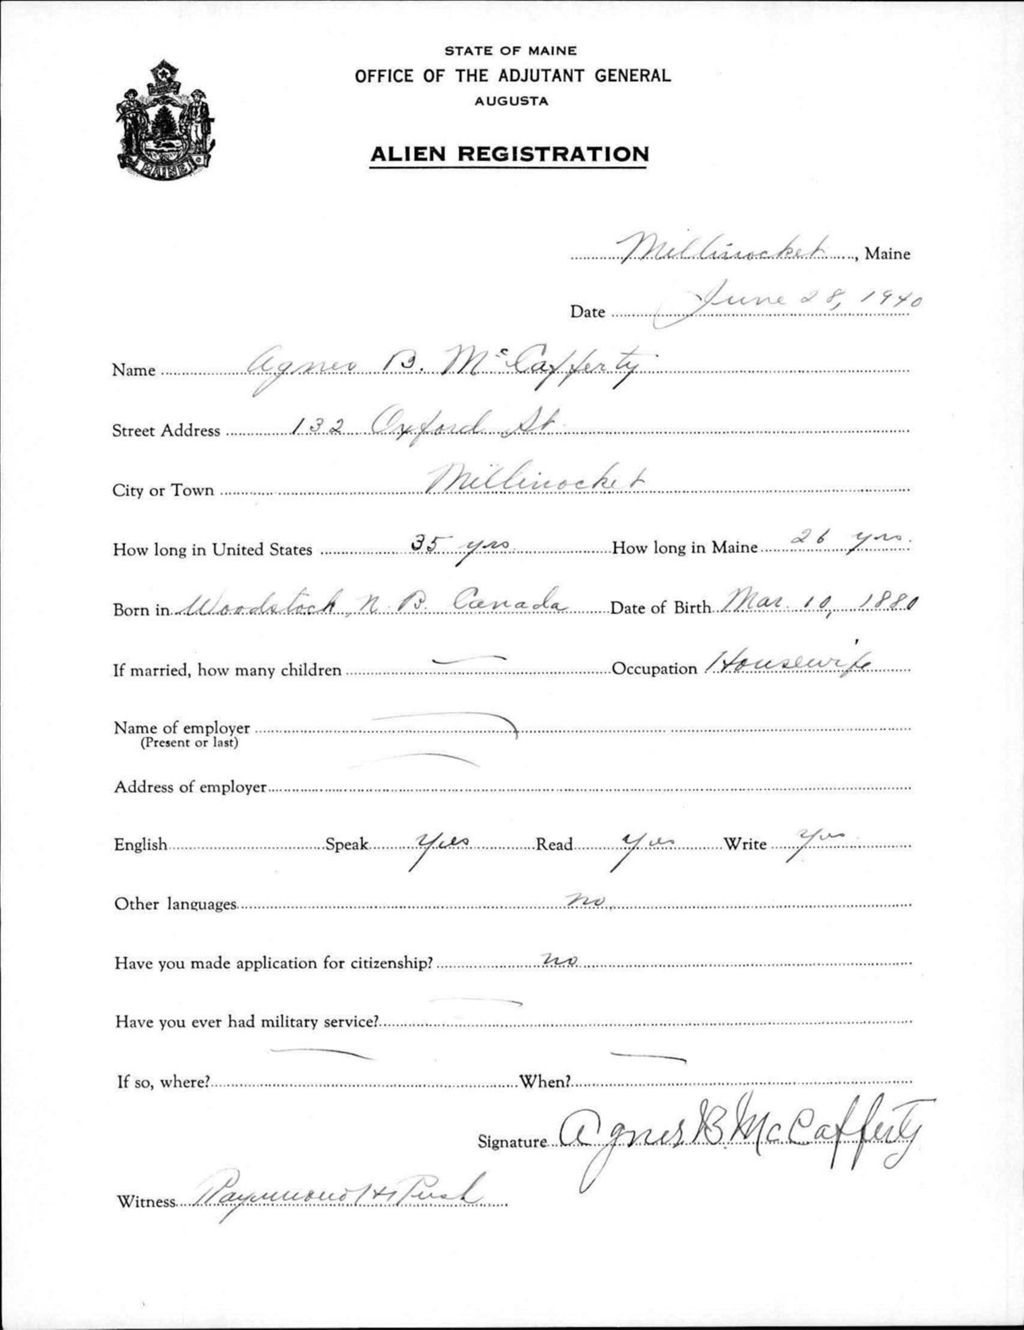 STATE OF MAINE
OFFICE OF THE ADJUTANT GENERAL
AUGUSTA
ALIEN REGISTRATION
MAINE
Millinocket, Maine
Date June 28, 1940
Name Agnes B. McCafferty
Street Address 132 Oxford St
City or Town Millinocket
How long in United States 35 yrs How long in Maine 26 yrs.
Born in Woodstock, N. B. Canada Date of Birth Mar. 10, 1880
If married, how many children — Occupation Housewife
Name of employer —
(Present or last)
Address of employer —
English Speak Yes Read Yes Write Yes
Other languages no
Have you made application for citizenship? no
Have you ever had military service? —
If so, where? — When? —
Signature Agnes B McCafferty
Witness Raymond H